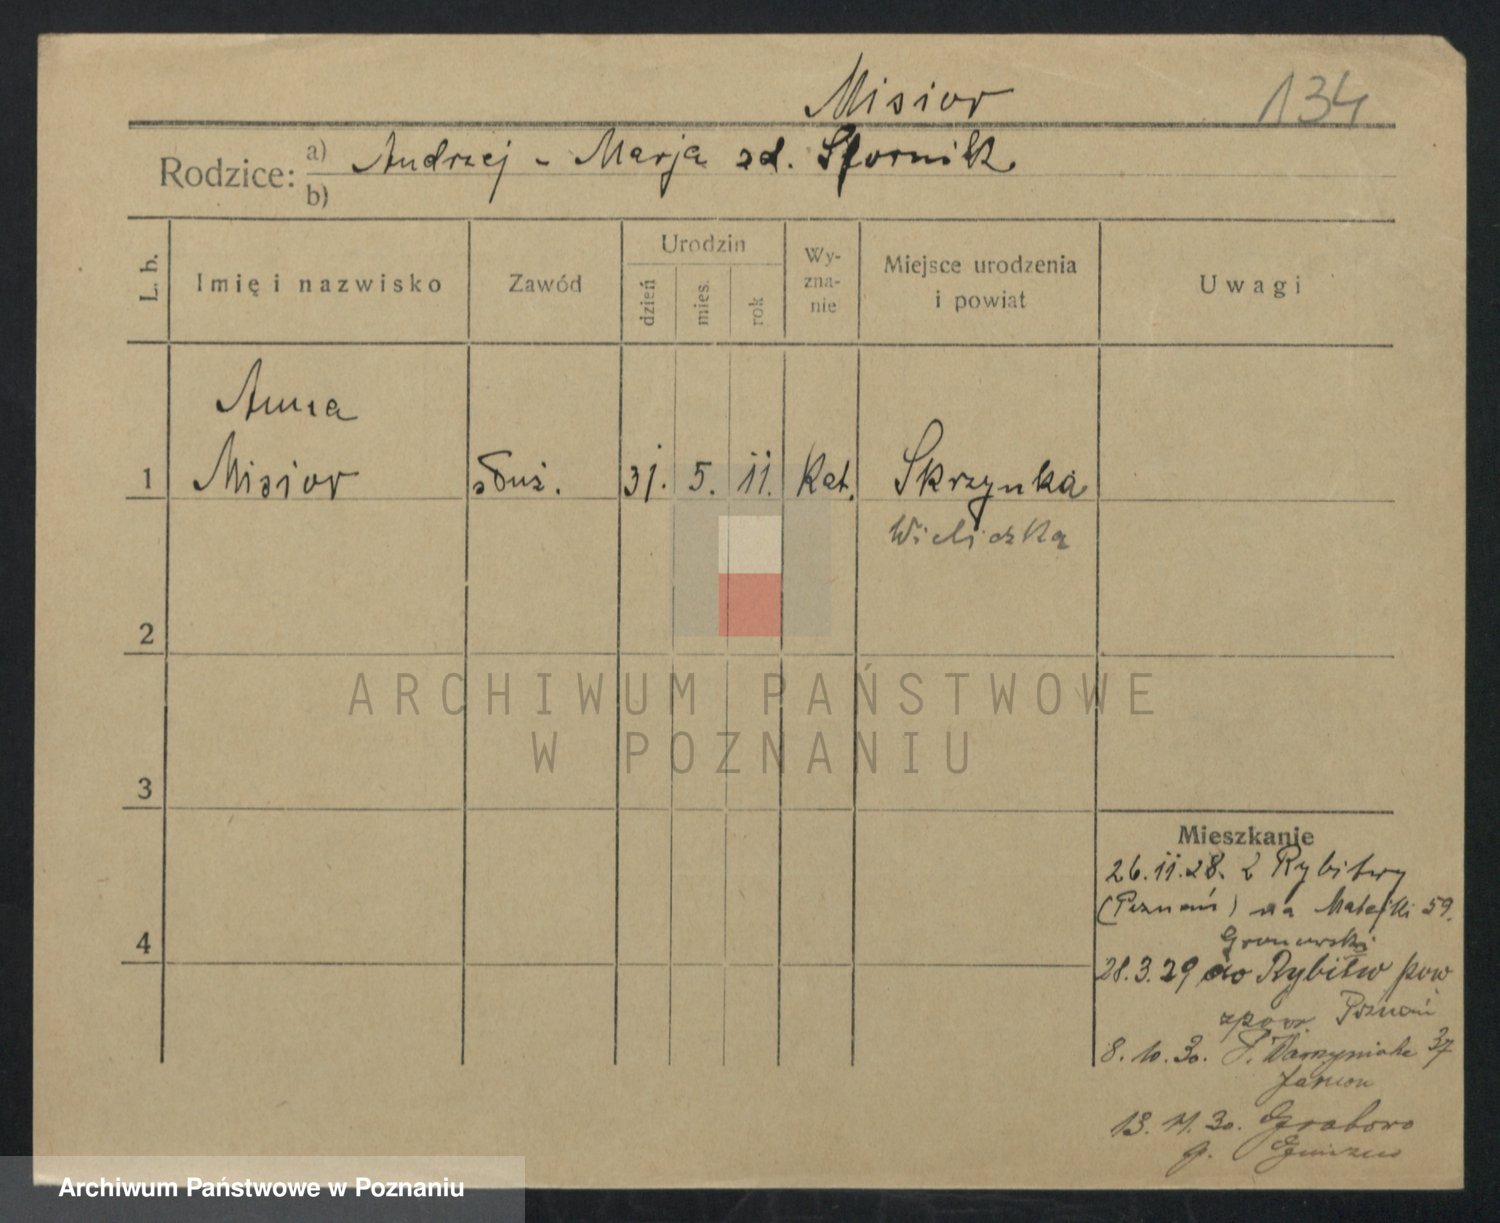 Misior
134
Rodzice: a) Andrzej - Marja zd. Sfornik
b)
L. b.
Imię i nazwisko
Zawód
Urodzin
dzień
mies.
rok
Wy-
zna-
nie
Miejsce urodzenia
i powiat
Uwagi
Anna
1 Misior służ. 31. 5. 11. Kat. Skrzynka
Wieliczka
2
3
4
Mieszkanie
26.11.28. z Rybitwy
(Poznań) na Matejki 59.
Gronowski
28.3.29 do Rybitw pow
zpow. Poznań
8. 10. 30. 37
Jarnon
13. 11. 30. Grabowo
p.
ARCHIWUM PAŃSTWOWE
W POZNANIU
Archiwum Państwowe w Poznaniu